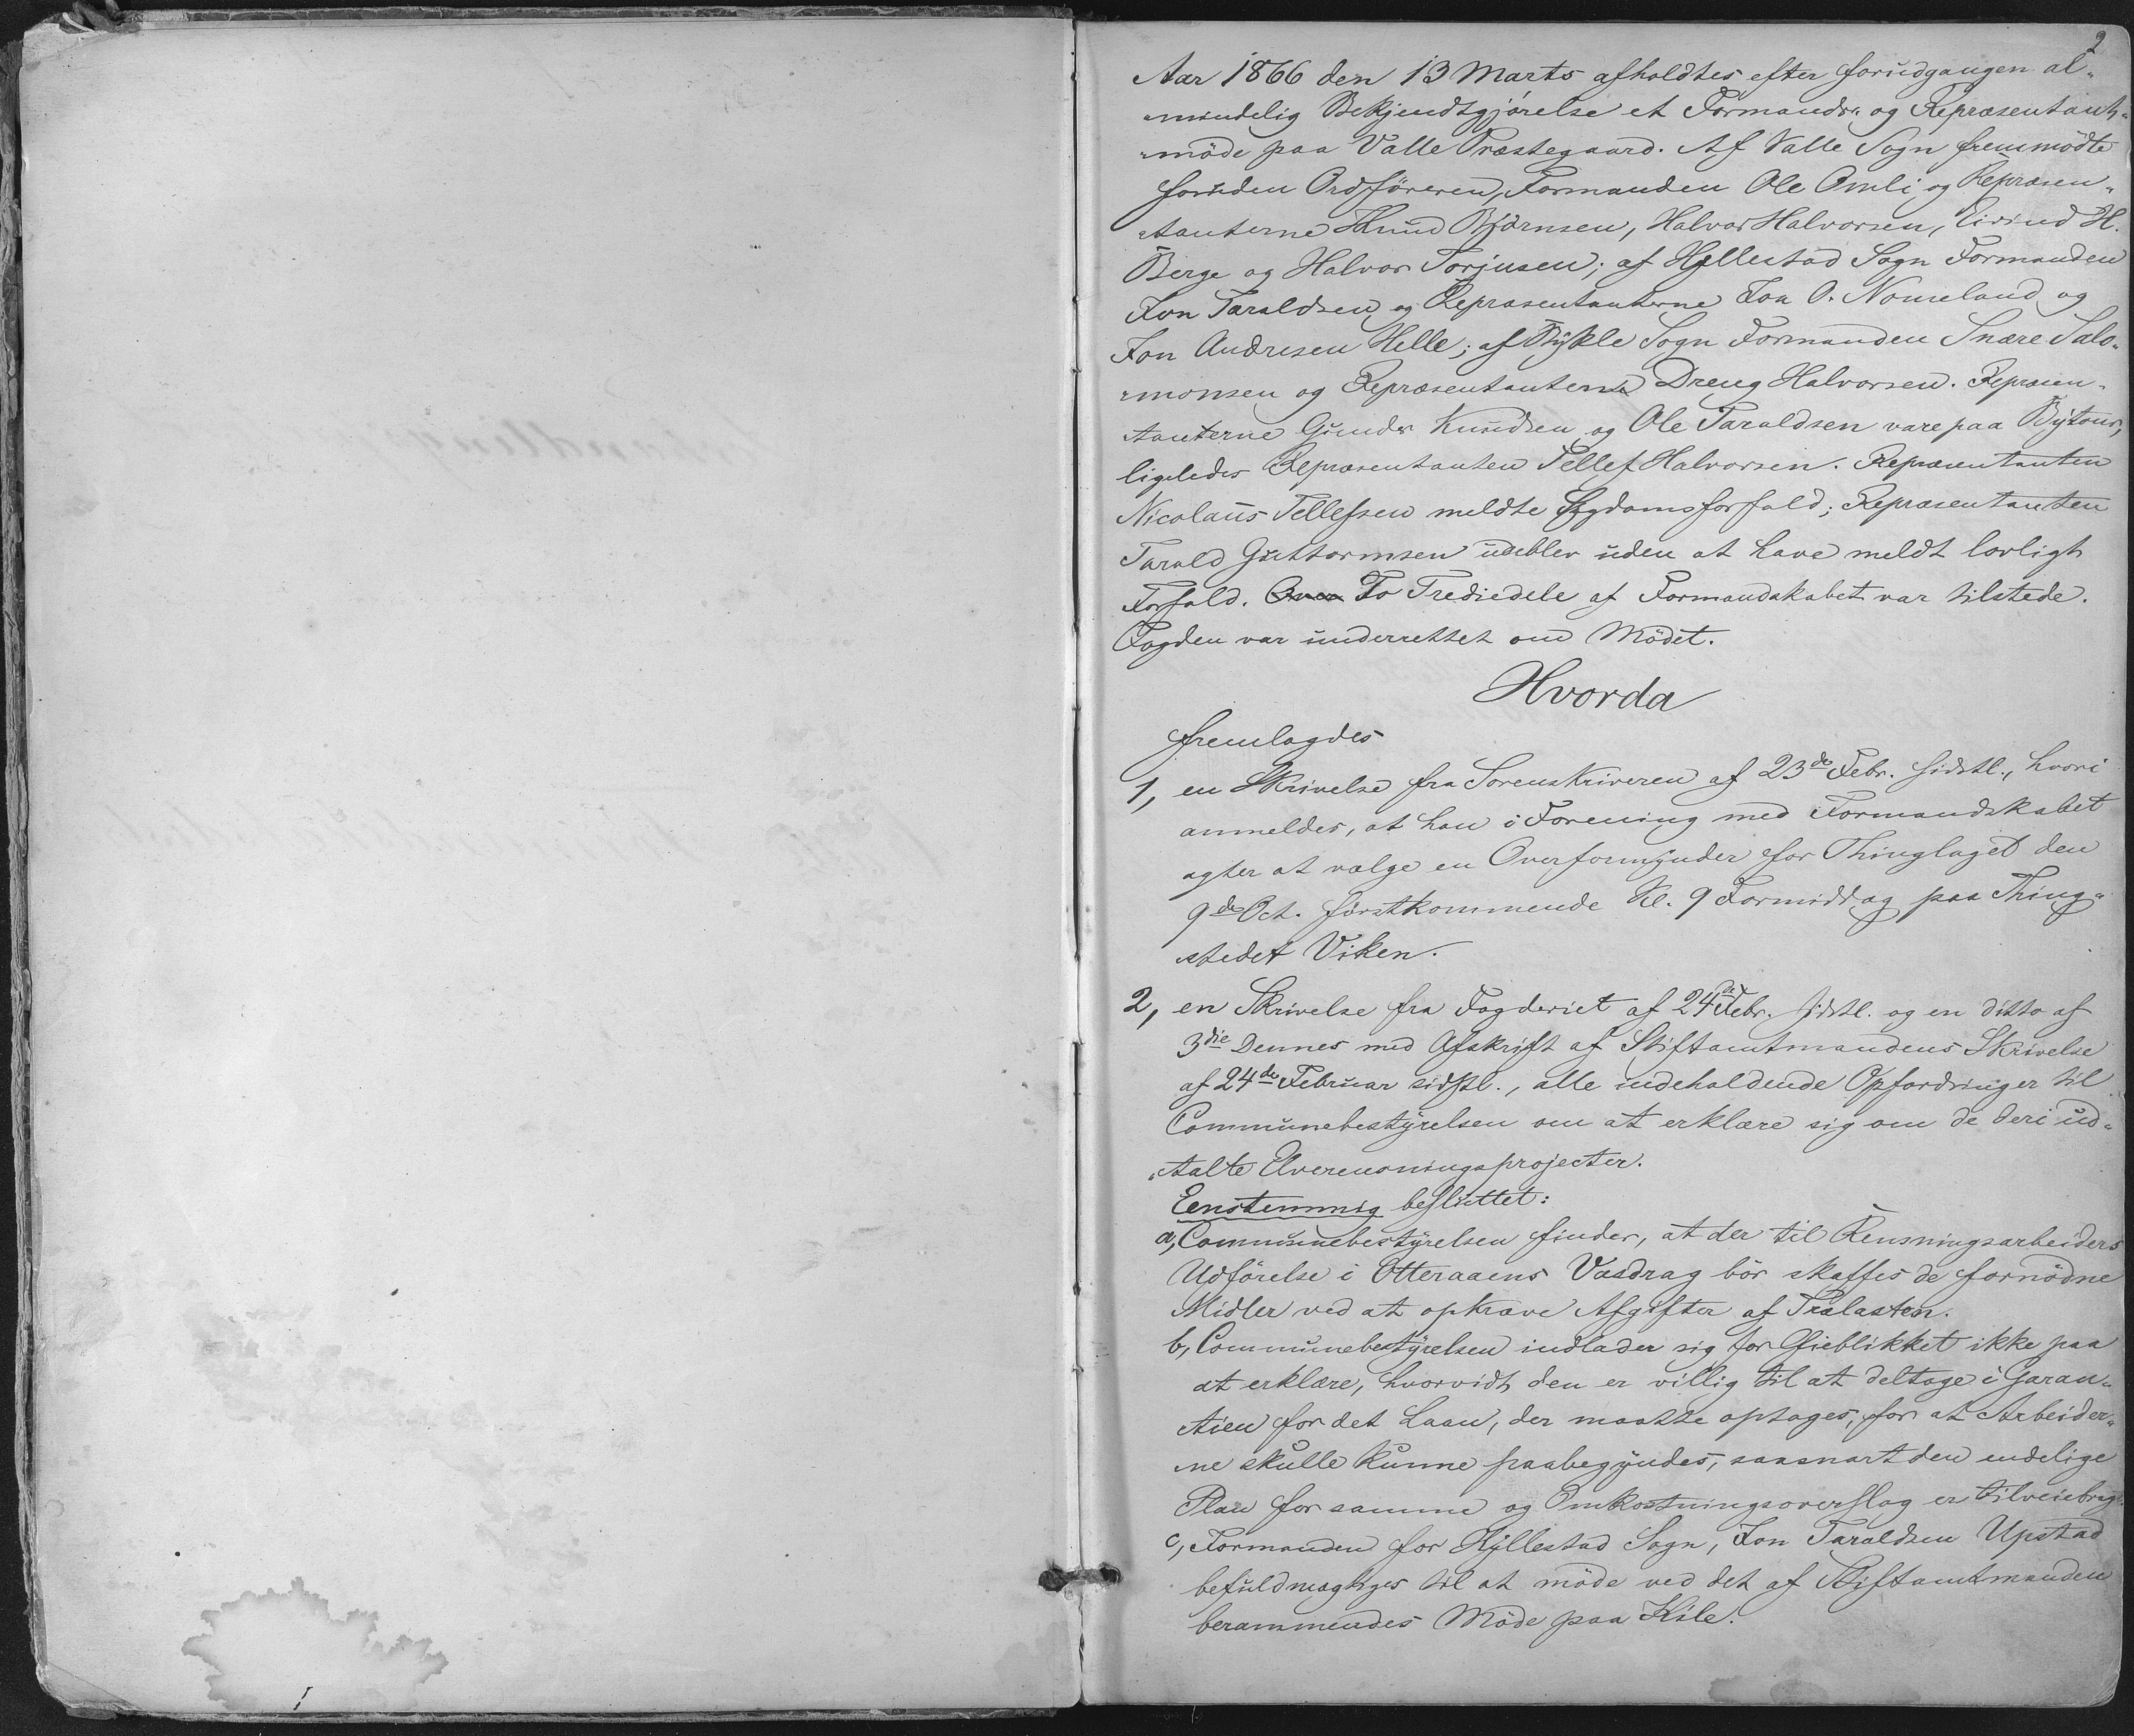 2
Aar 1866 den 13 Marts afholdtes efter forudgangen al„
„mindelig Bekjendtgjørelse et Formands„ og Repræsentant„
„møde paa Valle Præstegaard. Af Valle Sogn fremmødte
foruden Ordføreren, Formanden Ole Omli og Repræsen„
„tanterne Knud Bjørnsen, Halvor Halvorsen, Eivind H.
Berge og Halvor Torjusen; af Hyllestad Sogn Formanden
Jon Taraldsen og Repræsentanterne Jon O. Nomeland og
Jon Andresen Helle; af Bykle Sogn Formanden Snare Salo„
„monsen og Repræsentanterne Dreng Halvorsen. Repræsen„
tanterne Gunder Knudsen og Ole Taraldsen vare paa Bytour,
ligeledes Repræsentanten Tellef Halvorsen. Repræsentanten
Nicolaus Tellefsen meldte Sygdomsforfald; Repræsentanten
Tarald Guttormsen udeblev uden at have meldt lovligt
Forfald. Over To Trediedele af Formandskabet var tilstede.
Fogden var underrettet om Mødet.
Hvorda
fremlagdes
1, en Skrivelse fra Sorenskriveren af 23de Febr. sidstl., hvori
anmeldes, at han i Forening med Formandskabet
agter at vælge en Overformynder for Thinglaget den
9de Oct. førstkommende Kl. 9 Formiddag paa Thing„
stedet Viken.
2, en Skrivelse fra Fogderiet af 24de Febr. sidstl. og en ditto af
3die Dennes med Afskrift af Stiftamtmandens Skrivelse
af 24de Februar sidstl., alle indeholdende Opfordringer til
Communebestyrelsen om at erklære sig om de deri ud„
„talte Elverensningsprojecter.
Eenstemmig besluttet:
a, Communebestyrelsen finder, at der til Rensningsarbeiders
Udførelse i Otteraaens Vasdrag bør skaffes de fornødne
Midler ved at opkræve Afgifter af Trælasten.
b, Communebestyrelsen indlader sig for Øieblikket ikke paa
at erklære, hvorvidt den er villig til at deltage i Garan„
tien for det Laan, der maatte optages, for at Arbeider„
„ne skulle kunne paabegyndes, saasnart den endelige
Plan for samme og Omkostningsoverslag er tilveiebragt.
c, Formanden for Hyllestad Sogn, Jon Taraldsen Upstad
befuldmægtiges til at møde ved det af Stiftamtmanden
berammendes Møde paa Kile.